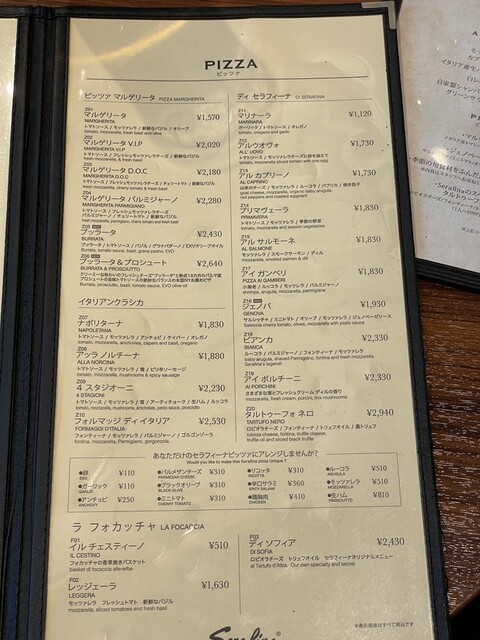 PIZZA
ピッツァ
ピッツァ マルゲリータ PIZZA MARGHERITA
Z01
マルゲリータ ¥1,570
MARGHERITA
トマトソース / モッツァレラ / 新鮮なバジル / オリーブ
tomato, mozzarella, fresh basil and olive
Z02
マルゲリータ V.I.P ¥2,020
MARGHERITA V.I.P
トマトソース / フレッシュモッツァレラチーズ / 新鮮なバジル
fresh mozzarella, & fresh basil
Z03
マルゲリータ D.O.C ¥2,180
MARGHERITA D.O.C
トマトソース / フレッシュモッツァレラチーズ / チェリートマト / 新鮮なバジル
fresh mozzarella, cherry tomato & fresh basil
Z04
マルゲリータ パルミジャーノ ¥2,280
MARGHERITA PARMIGIANO
トマトソース / フレッシュモッツァレラチーズ
パルミジャーノ / チェリートマト / 新鮮なバジル
Z05
ブッラータ ¥2,430
BURRATA
ブッラータ / トマトソース / バジル / グラナパダーノ / EXVオリーブオイル
Burrata, tomato sauce, basil, grana padano, EVO
Z06
ブッラータ&プロシュート ¥2,640
BURRATA & PROSCIUTTO
Burrata, prosciutto, tomato sauce, basil, EVO olive oil
イタリアンクラシカ
Z07
ナポリターナ ¥1,830
NAPOLETANA
トマトソース / モッツァレラ / アンチョビ / ケイパー / オレガノ
tomato, mozzarella, anchovies, capers and basil, oregano
Z08
アッラ ノルチーナ ¥1,880
ALLA NORCINA
トマトソース / モッツァレラ / 茸 / ピリ辛ソーセージ
tomato, mozzarella, mushrooms & spicy sausage
Z09
4 スタジオーニ ¥2,230
4 STAGIONI
トマトソース / モッツァレラ / 茸 / アーティチョーク / 生ハム / ルッコラ
tomato, mozzarella, mushroom, artichokes, pesto sauce, prosciutto
Z10
フォルマッジ ディ イタリア ¥2,530
FORMAGGI D'ITALIA
フォンティーナ / モッツァレラ / パルミジャーノ / ゴルゴンゾーラ
fontina, mozzarella, Parmigiano, gorgonzola
ディ セラフィーナ DI SERAFINA
Z11
マリナーラ ¥1,120
MARINARA
ガーリック / トマトソース / オレガノ
tomato, oregano and garlic
Z12
アルウオヴォ ¥1,730
ALL' UOVO
トマトソース / モッツァレラチーズに卵を添えて
tomato, mozzarella sliced tomato with one egg
Z13
アル カプリーノ ¥1,730
AL CAPRINO
山羊のチーズ / モッツァレラ / ルーコラ / パプリカ / 焼き茄子
goat cheese, mozzarella, organic baby arugula,
red peppers and roasted eggplant
Z14
プリマヴェーラ ¥1,830
PRIMAVERA
トマトソース / モッツァレラ / 季節の野菜
tomato, mozzarella and season vegetables
Z15
アル サルモーネ ¥1,830
AL SALMONE
モッツァレラ / スモークサーモン / ディル
mozzarella, smoked salmon & dill
Z17
アイ ガンベリ ¥1,830
PIZZA AI GAMBERI
小海老 / ルッコラ / モッツァレラ / パルミジャーノ
shrimps, arugula, mozzarella, parmigiano
Z16
ジェノバ ¥1,930
GENOVA
サルシッチャ / ミニトマト / オリーブ / モッツァレラ / ジェノベーゼソース
Salsiccia cherry tomato, olives, mozzarella with pesto sauce
Z18
ビアンカ ¥2,330
BIANCA
ルーコラ / パルミジャーノ / フォンティーナ / モッツァレラ
baby arugula, shaved Parmigiano, fontina and fresh mozzarella.
Serafina's legend!
Z19
アイ ポルチーニ ¥2,330
AI PORCHINI
さまざまな茸とフレッシュクリーム ディルの香り
mozzarella, fresh cream, porcini, mix mushrooms
Z20
タルトゥーフォ ネロ ¥2,940
TARTUFO NERO
ロビオラチーズ / フォンティーナ / トリュフオイル / 黒トリュフ
robiola cheese, fontina, truffle cheese,
truffle oil and sliced black truffle
あなただけのセラフィーナピッツァにアレンジしませんか?
Would you like to make this Serafina pizza Unique ?
●卵 ¥110
EGG
●パルメザンチーズ ¥310
PARMESAN CHEESE
●リコッタ ¥310
RICOTTA
●ルーコラ ¥510
ARUGULA
●ガーリック ¥110
GARLIC
●ブラックオリーブ ¥310
BLACK OLIVE
●辛口サラミ ¥360
SPICY SALAMI
●モッツァレラ ¥510
MOZZARELLA
●アンチョビ ¥250
ANCHOVY
●ミニトマト ¥310
CHERRY TOMATO
●鶏胸肉 ¥410
CHICKEN
●生ハム ¥810
PROSCIUTTO
ラ フォカッチャ LA FOCACCIA
F01
イル チェスティーノ ¥510
IL CESTINO
フォカッチャの香草焼きバスケット
basket of focaccia alle erbe
F02
レッジェーラ ¥1,630
LEGGERA
モッツァレラ フレッシュトマト 新鮮なバジル
mozzarella, sliced tomatoes and fresh basil
F03
ディ ソフィア ¥2,430
DI SOFIA
ロビオラチーズ トリュフオイル セラフィーナオリジナルメニュー
al Tartufo d'Alba. Our own specialty and secret
※表示価格はすべて税込です
Serafina